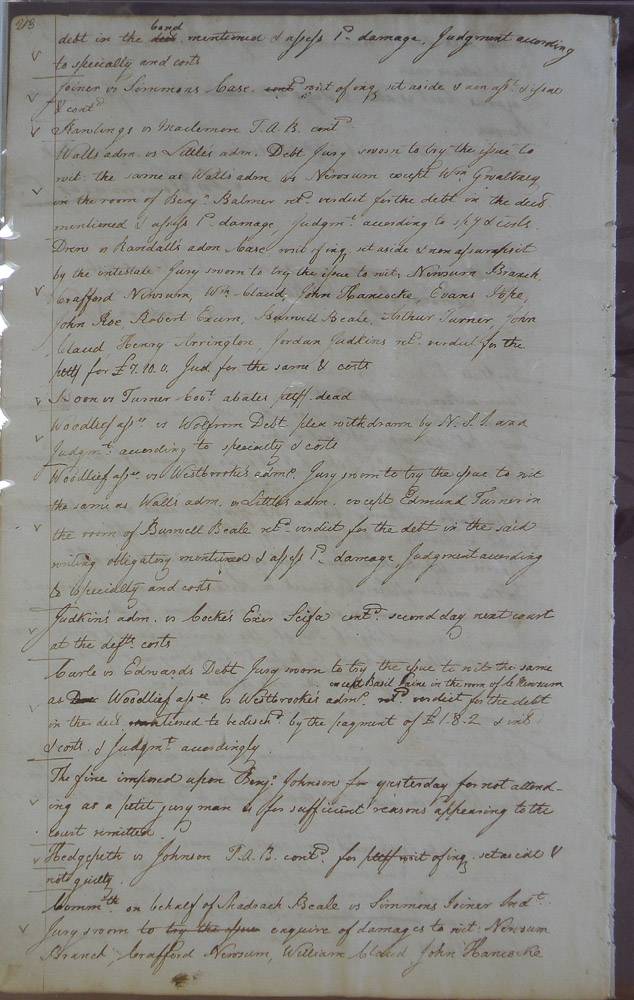 213
bond
debt in the deed mentioned & assess 1d damage, Judgment according
to specialty and costs
Joiner vs Simmons Case. contd writ of inq set aside & non asst & issue
& contd
Rawlings vs Maclemore T.A.B. contd
Walls adm. vs Little's adm. Debt Jury sworn to try the issue to
wit. the same as Walls adm vs Newsum except Wm
in the room of Benja Balmer retd verdict for the debt in the decl
mentioned & assess 1d damage, Judgmt. according to spty & costs.
Drew vs Randall's adm Case writ of inq set aside & non assumpsit
by the intestate Jury sworn to try the issue to wit, Newsum Branch
Crafford Newsum, Wm Claud, John Hancocke, Evans Pope,
John Roe, Robert Exum, Burwell Beale, Arthur Turner, John
Claud Henry Arrington, Jordan Judkins retd verdict for the
pltff for £7.10.0. Jud. for the same & costs
Boon vs Turner Covt abates pltff. dead
Woodlief assee vs Wolfrom Debt plea withdrawn by N.S.J. and
Judgmt according to specialty & costs
Woodlief assee vs Westbrooke's admr. Jury sworn to try the issue to wit
the same as Walls adm. vs Littles adm. except Edmund Turner in
the room of Burwell Beale retd verdict for the debt in the said
writing obligatory mentioned & assess 1d damage Judgment according
to specialty and costs
Judkins adm. vs Cocke's Exor Scifa contd second day next court
at the defts. costs
Carle vs Edwards Debt Jury sworn to try the issue to wit the same
except Basil Paine in the room of C Newsum
as Woodlief assee vs Westbrooke's admr. retd verdict for the debt
in the decl mentioned to be dischd by the payment of £1.8.2 & int
& costs. & Judgmt accordingly
The fine imposed upon Benja Johnson for yesterday for not attend-
ing as a petit jury man is for sufficient reasons appearing to the
court remitted
Hedgepeth vs Johnson T.A.B. contd for pltff writ of inq. set aside &
not guilty.
Commth. on behalf of Shadrach Beale vs Simmons Joiner Indt
Jury sworn to try the issue enquire of damages to wit. Newsum
Branch, Crafford Newsum, William Claud John Hancocke